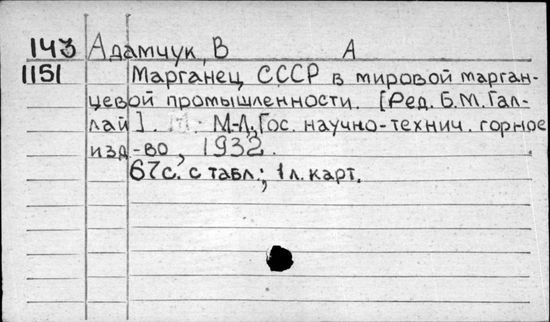 143 Адамчук, В А
1151 Марганец СССР в мировой марган-
цевой промышленности. [Ред. Б.М. Гал-
лай]. М.-Л., Гос. научно-технич. горное
изд-во, 1932.
67с. с табл.; 1 л. карт.